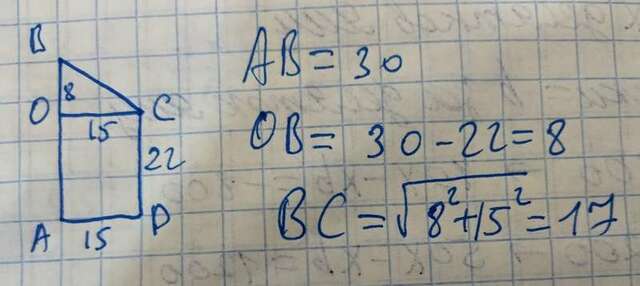 B
8
O
C
15
22
A
D
15
AB = 30
OB = 30 - 22 = 8
BC = √8² + 15² = 17